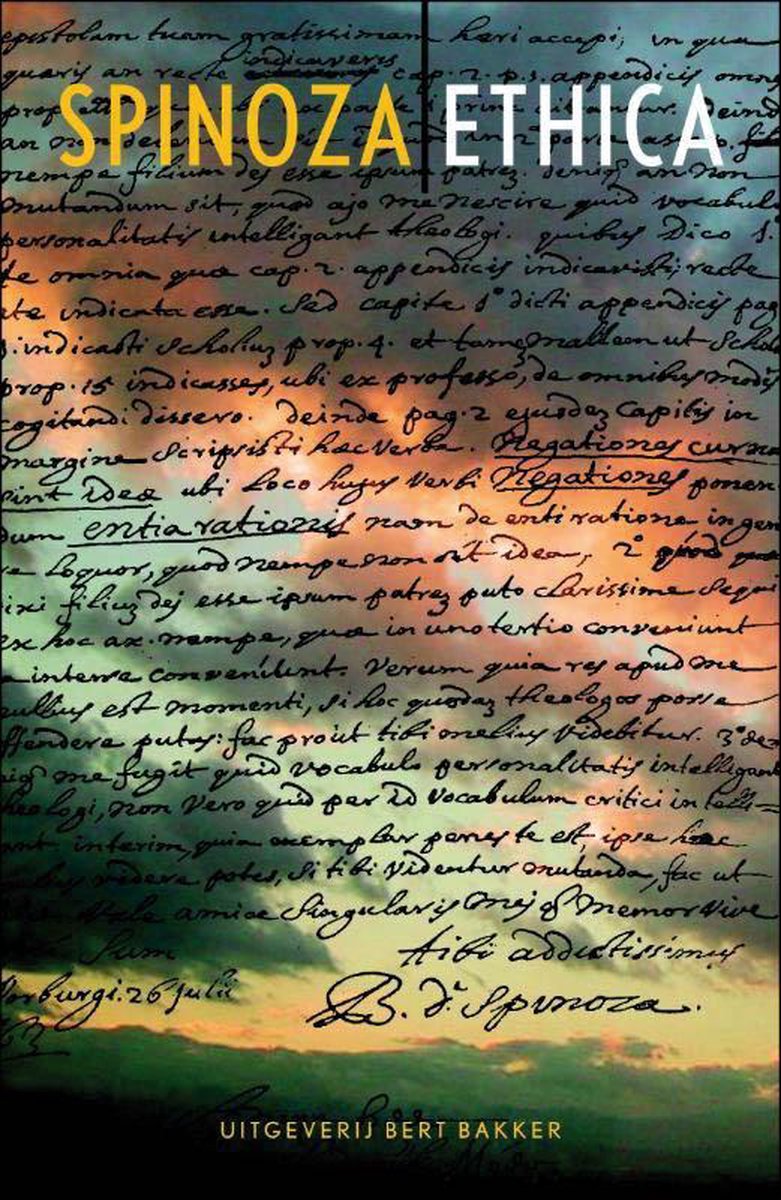 epistolam tuam gratissimam heri accepi; in qua
indicaveris
quæris an recte cap. 2. p. 1. appendicis omnes
SPINOZA | ETHICA
nempe filium dej esse ipsum patrez. deniq an non
mutandum sit, quod ajo me nescire quid vocabul
personalitatis intelligant theologi. quibus Dico 1.
te omnia quæ cap. 2. appendicis indicavisti, recte
te indicata esse. Sed capite 1° dicti appendicis pag
1. indicasti Scholiuz prop. 4. et tamez mallem ut Schol
prop. 15 indicasses, ubi ex professo, de omnibus modis
cogitandi dissero. deinde pag. 2 ejusdez Capitis in
margine Scripsisti hæc verba. Negationes cur na
sint ideæ ubi Loco hujus Verbi Negationes ponen
dum entia rationis nam de enti ratione in gen
re loquor, quod nempe non sit idea, 2°
ixi filiuz dej esse ipsum patrez puto clarissime Sequi
ex hoc ax. nempe, quæ in uno tertio conveniunt
a interse conveniunt. Verum quia res apud me
nullius est momenti, si hoc quosdaz theologos posse
ffendere putas: fac prout tibi melius Videbitur. 3° de=
niq me fugit quid vocabulo personalitatis intelligant
heologi, non Vero quid per id vocabulum critici intelli=
ant. interim, quia exemplar penes te est, ipse hæc
videre potes, si tibi Videntur mutanda, fac ut
Vale amice Singularis Mej q Memor Vive
Sum
tibi addictissimus
Vorburgi. 26 julii
B. d. Spinoza.
UITGEVERIJ BERT BAKKER